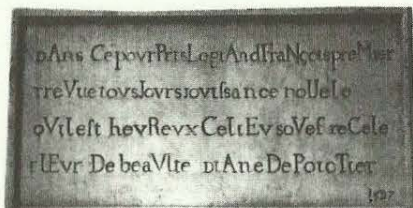 DAns CepovrPris LogtAnd FraNçoispreMier
treVue tovsJovrsiovissance noVele
qVil est hevReux CeLiEv soVef receLe
fLEvr De beaVlte DiAne De Poictier